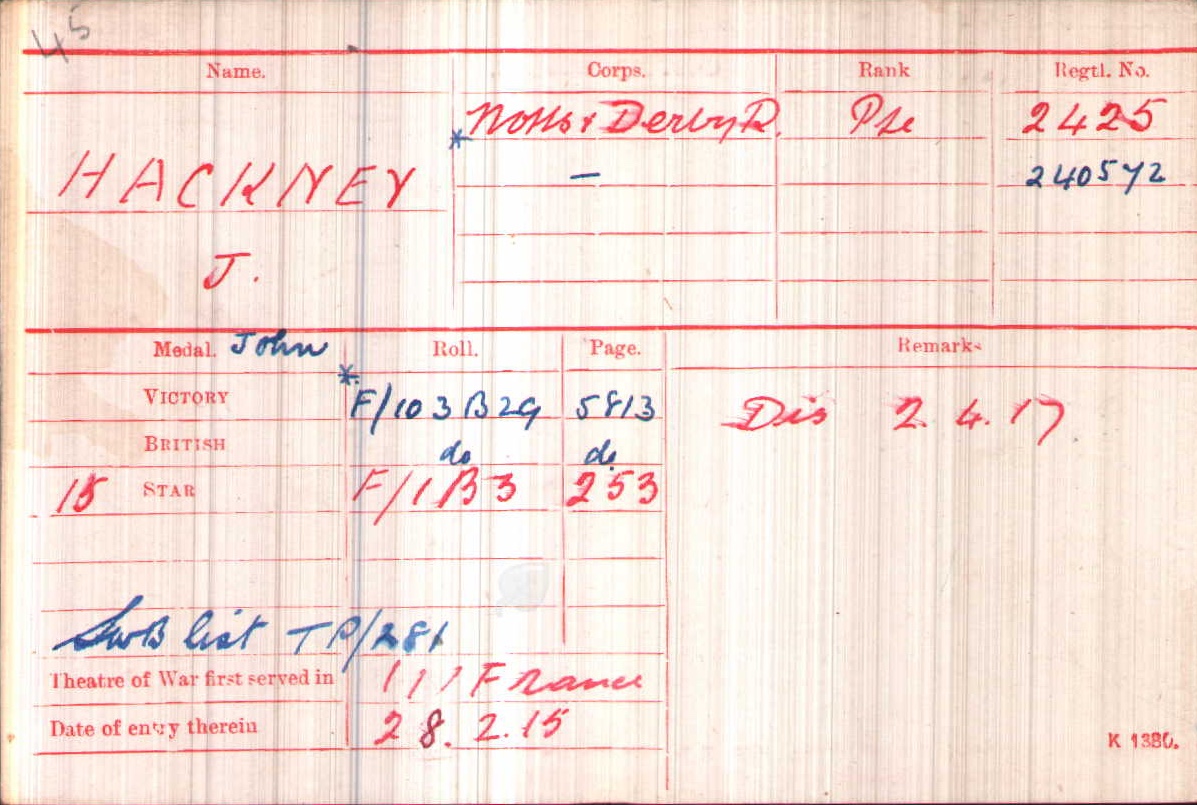 45
Name. Corps. Rank Regtl. No.
Notts & Derby R. Pte 2425
HACKNEY * — 240572
J.
Medal. John Roll. Page. Remarks
VICTORY * F/103 B29 5813 Dis 2.4.17
BRITISH do do.
15 STAR F/1 B3 253
SWB list TP/281
Theatre of War first served in 111 France
Date of entry therein 28.2.15
K 1380.